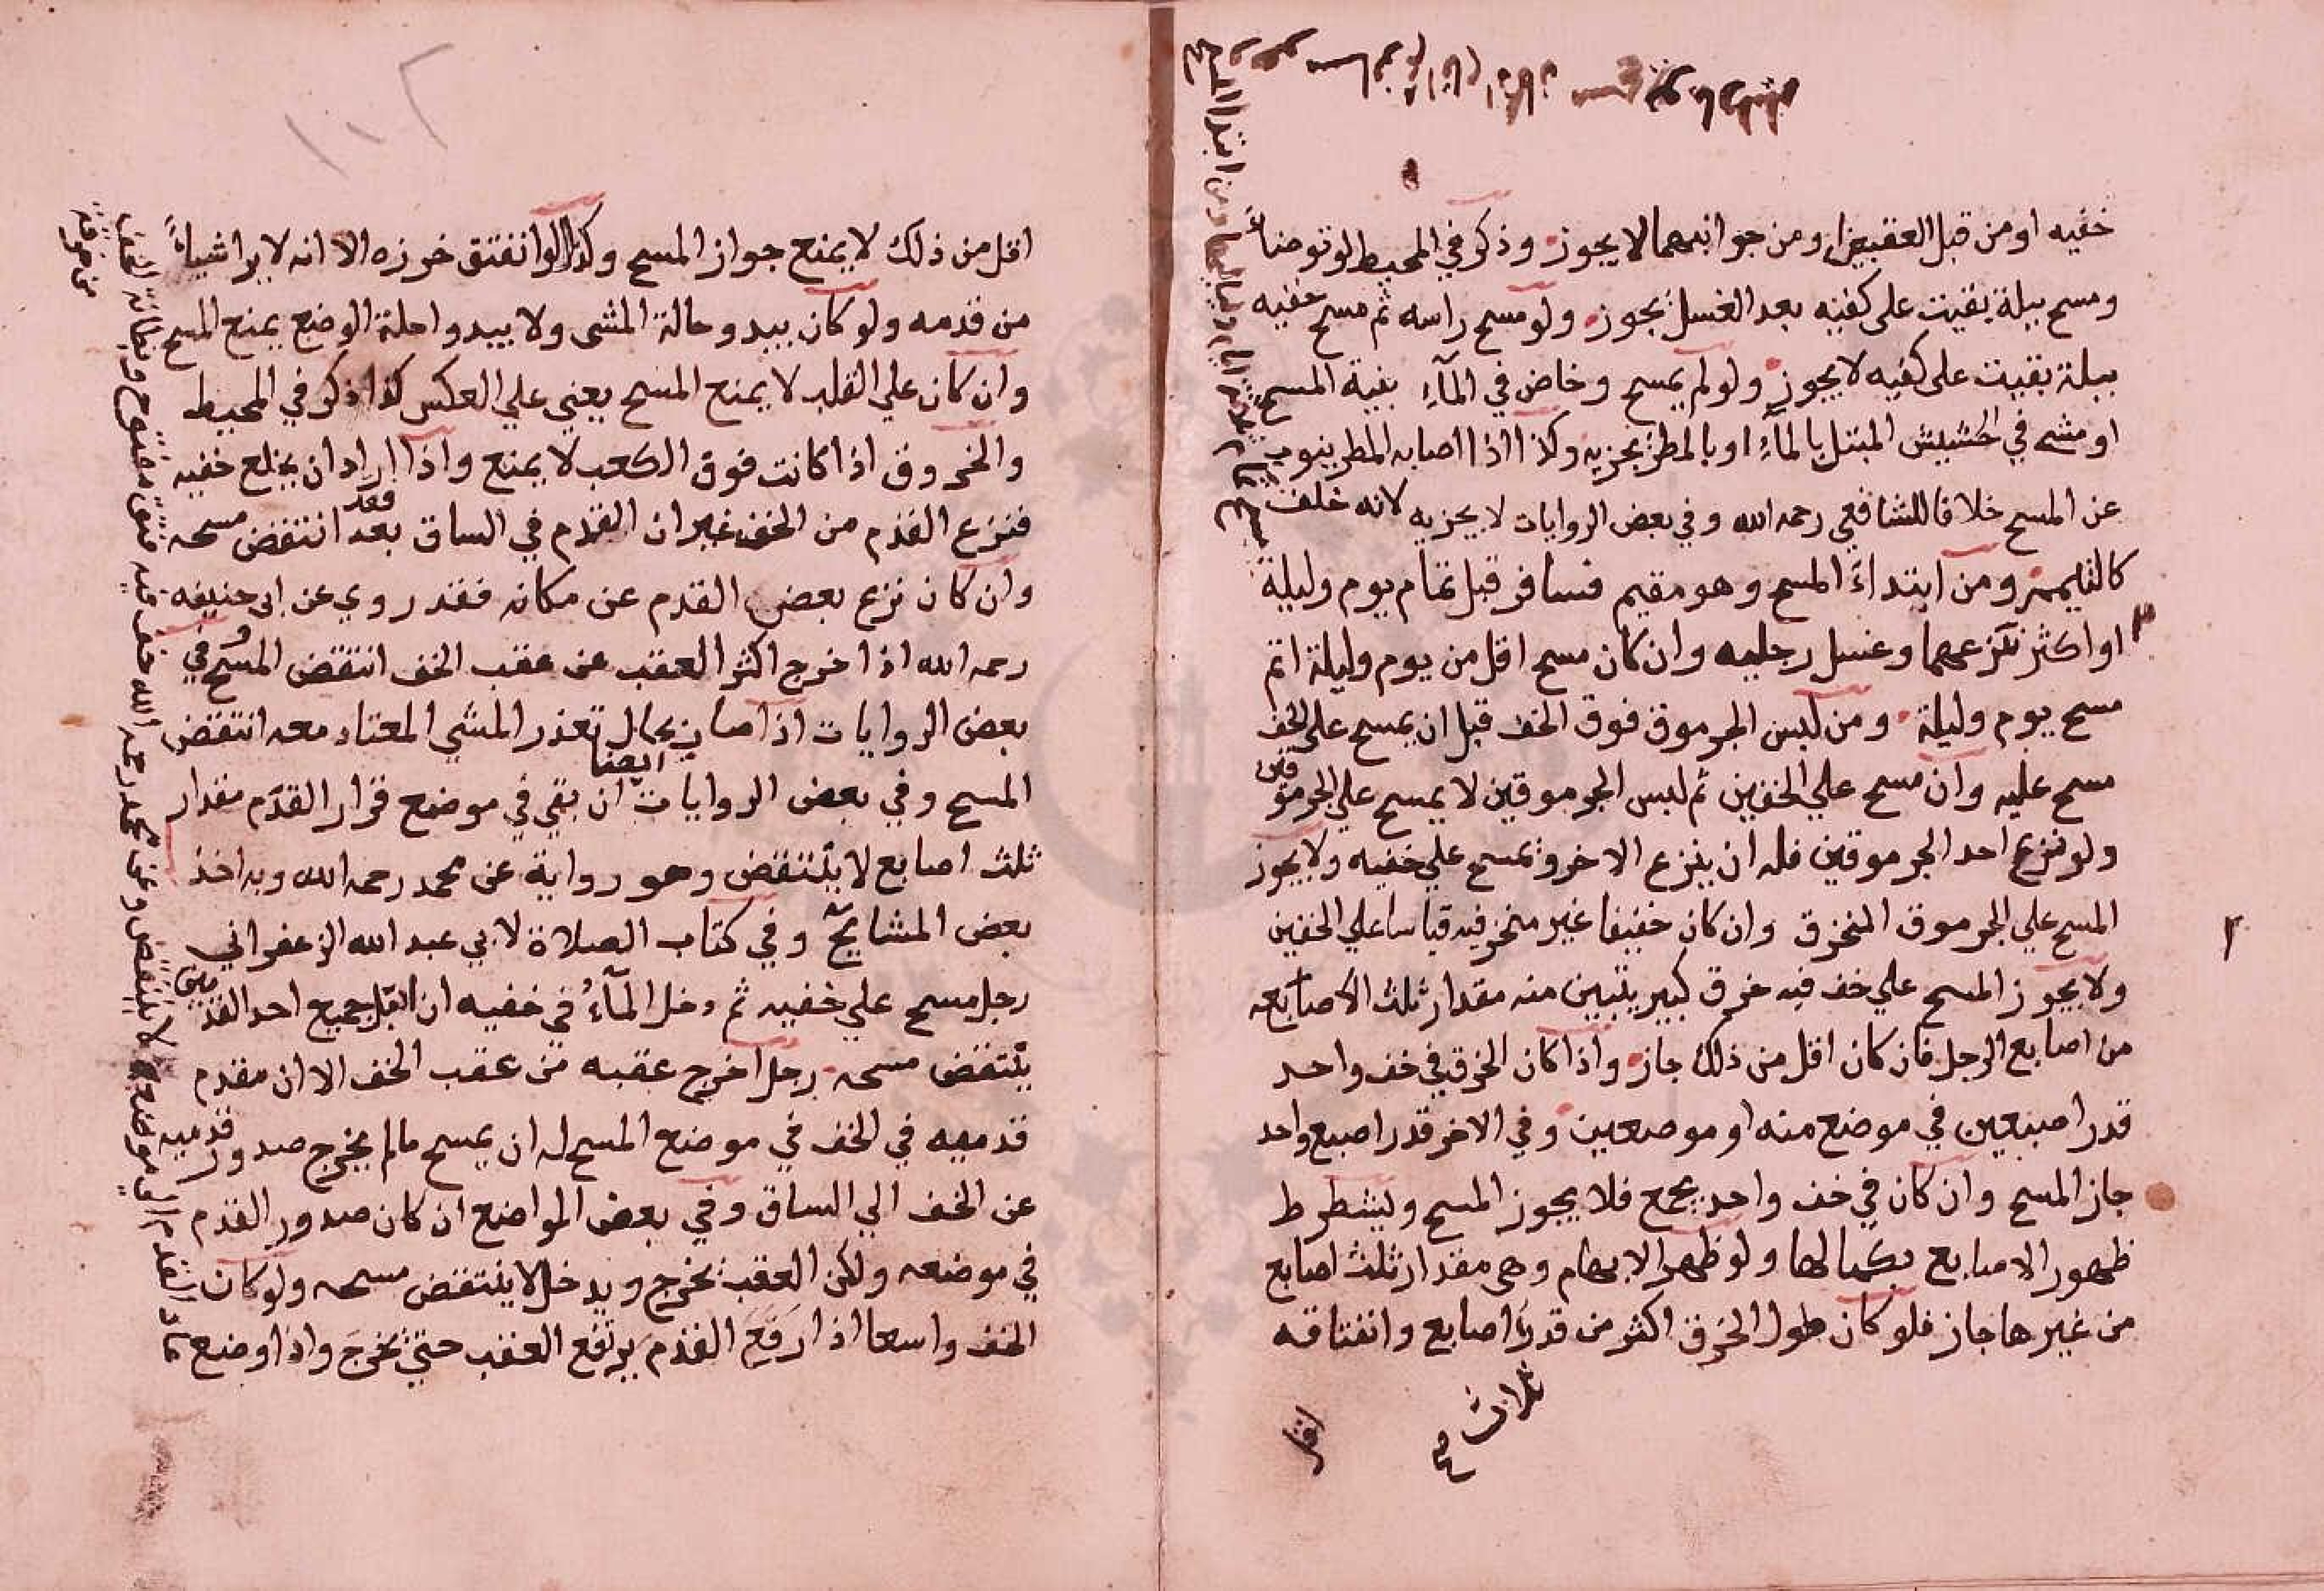 خفيه او من قبل العقبين او من جوانبهما لا يجوز وذكر في المحيط لو توضاء
ومسح ببلة بقيت على كفيه بعد الغسل يجوز ولو مسح راسه ثم مسح خفيه
ببلة بقيت على كفيه لا يجوز ولو لم يمسح وخاض في المآء بنية المسح
او مشى في الحشيش المبتل بالمآء او بالمطر يجزيه وكذا اذا اصابه المطر ينوب
عن المسح خلافا للشافعي رحمه الله وفي بعض الروايات لا يجزيه لانه خلف
كالتيمم ومن ابتداء المسح وهو مقيم فسافر قبل تمام يوم وليلة
او اكثر نزعهما وغسل رجليه وان كان مسح اقل من يوم وليلة اتم
مسح يوم وليلة ومن لبس الجرموق فوق الخف قبل ان يمسح على الخف
مسح عليه وان مسح علي الخفين ثم لبس الجرموقين لا يمسح علي الجرموقين
ولو نزع احد الجرموقين فله ان ينزع الاخر ويمسح علي خفيه ولا يجوز
المسح علي الجرموق المنخرق وان كان خفيفا غير منخرفيه قياسا علي الخفين
ولا يجوز المسح علي خف فيه خرق كبير يتبين منه مقدار ثلث الاصابعه
من اصابع الرجل فان كان اقل من ذلك جاز واذا كان الخرق في خف واحد
قدر اصبعين في موضع منه او موضعين وفي الاخر قدر اصبع واحد
جاز المسح وان كان في خف واحد يجمع فلا يجوز المسح ويشطرط
ظهور الاصابع بكمالها ولو ظهر الابهام وهى مقدار ثلث اصابع
من غيرها جاز فلو كان طول الخرق اكثر من قدر اصابع وانفتاقه
ثلاث
اقل
١٠٢
اقل من ذلك لا يمنع جواز المسح وكذا لو انفتق خرزه الا انه لا يرا شياء
من قدمه ولو كان يبدو حالة المشى ولا يبدوا حلة الوضع يمنع المسح
وان كان علي القلب لا يمنع المسح يعني علي العكس كذا ذكر في المحيط
والخروق اذا كانت فوق الكعب لا يمنع واذا اراد ان يخلع خفيه
فنزع القدم من الخف غير ان القدم في الساق بعد فقد انتقض مسحه
وان كان نزع بعض القدم عن مكانه فقد روي عن ابى حنيفه
رحمه الله اذا خرج اكثر العقب عن عقب الخف انتقض المسح وفي
بعض الروايات اذا صار بحال تعذر المشي المعتاد معه انتقض
المسح وفي بعض الروايات ايضا ان بقي في موضع قرار القدم مقدار
ثلث اصابع لا ينتقض وهو رواية عن محمد رحمه الله وبه اخذ
بعض المشايخ وفي كتاب الصلاة لابي عبد الله الزعفراني
رجل مسح علي خفيه ثم دخل المآء في خفيه ان ابتل جميع احد القدمين
ينتقض مسحه رجل اخرج عقبه من عقب الخف الا ان مقدم
قدميه في الخف في موضع المسح له ان يمسح مالم يخرج صدور قدميه
عن الخف الي الساق وفي بعض المواضع ان كان صدور القدم
في موضعه ولكن العقب يخرج ويدخل لا ينتقض مسحه ولو كان
الخف واسعا اذا رفع القدم يرتفع العقب حتي يخرج واذا وضع
عاد القدم الي موضعه لا ينتقض وعن محمد رحمه الله خف فيه فتق مفتوح وبطانة الخف
من خرقة